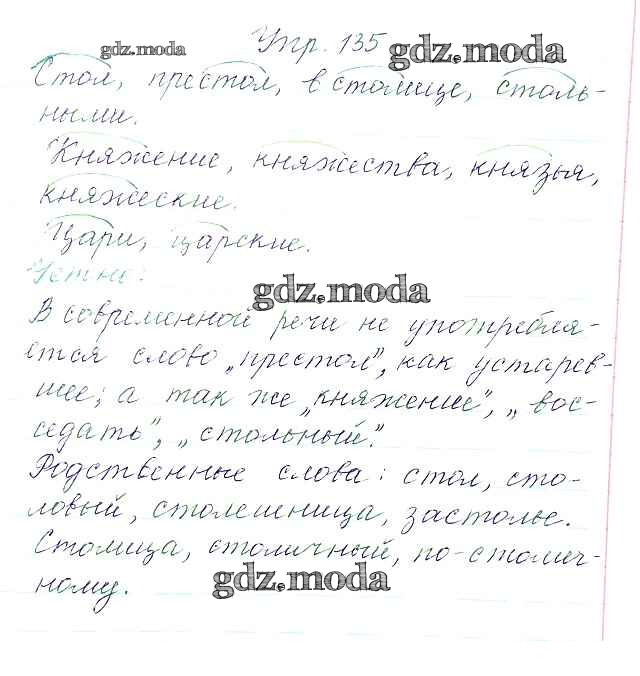 gdz.moda Упр. 135 gdz.moda
Стол, престол, в столице, столь-
ными.
Княжение, княжества, князья,
княжеские.
Цари, царские.
Устно:
gdz.moda
В современной речи не употребля-
ется слово „престол", как устарев-
шее; а так же „княжение", „вос-
седать", „стольный".
Родственные слова: стол, сто-
ловый, столешница, застолье.
Столица, столичный, по-столич-
ному.
gdz.moda